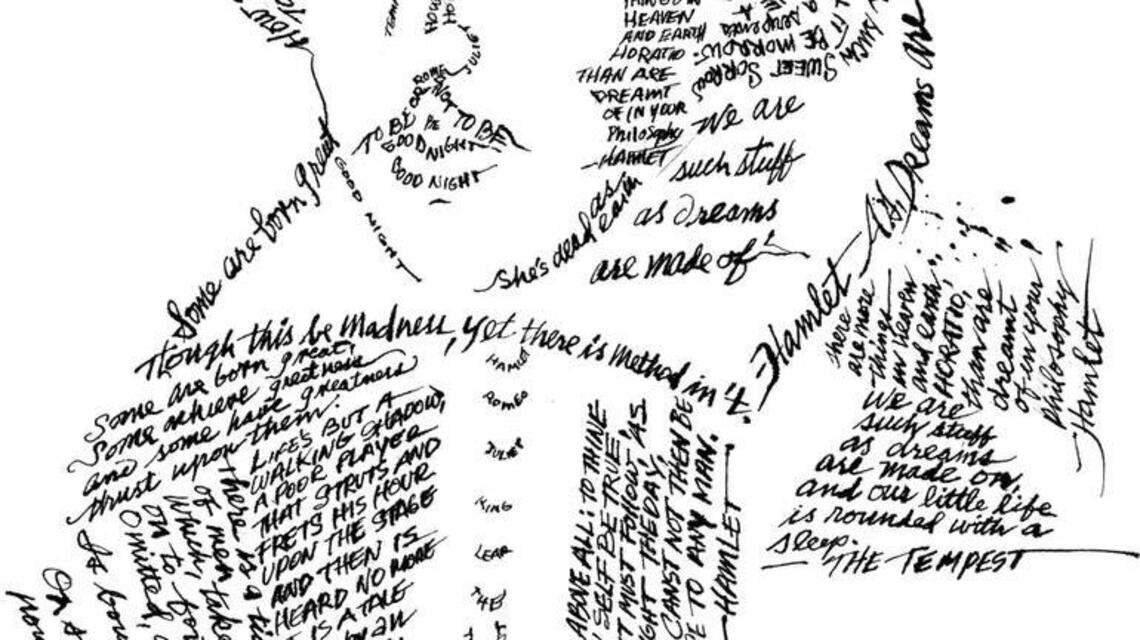 How
HEAVEN
AND EARTH
HORATIO
THAN ARE
DREAMT
OF IN YOUR
Philosophy
—HAMLET
SWEET SORROW
BE MORROW.
SUCH
JULIET
OR ROME
OR NOT
TO BE
TO BE
GOOD NIGHT
GOOD NIGHT
GOOD NIGHT
We are
such stuff
as dreams
are made of
She's dead as
earth
Some are born great
Dreams are
—Hamlet
Though this be Madness, yet there is Method in 't.
Some are born great,
Some achieve greatness
and some have greatness
thrust upon them.
LIFE'S BUT A
WALKING SHADOW,
A POOR PLAYER
THAT STRUTS AND
FRETS HIS HOUR
UPON THE STAGE
AND THEN IS
HEARD NO MORE
IS A TALE
by an
There is a
of men
Which, take
on to
Omitted,
HAMLET
ROMEO
JULIET
KING
LEAR
ABOVE ALL: TO THINE
SELF BE TRUE,
MUST FOLLOW, AS
THE DAY
CANST NOT THEN BE
TO ANY MAN.
—HAMLET
there
are more
things
in heaven
and earth,
HORATIO,
than are
dreamt
of in your
philosophy
—Hamlet
we are
such stuff
as dreams
are made on,
and our little life
is rounded with a
sleep.
—THE TEMPEST